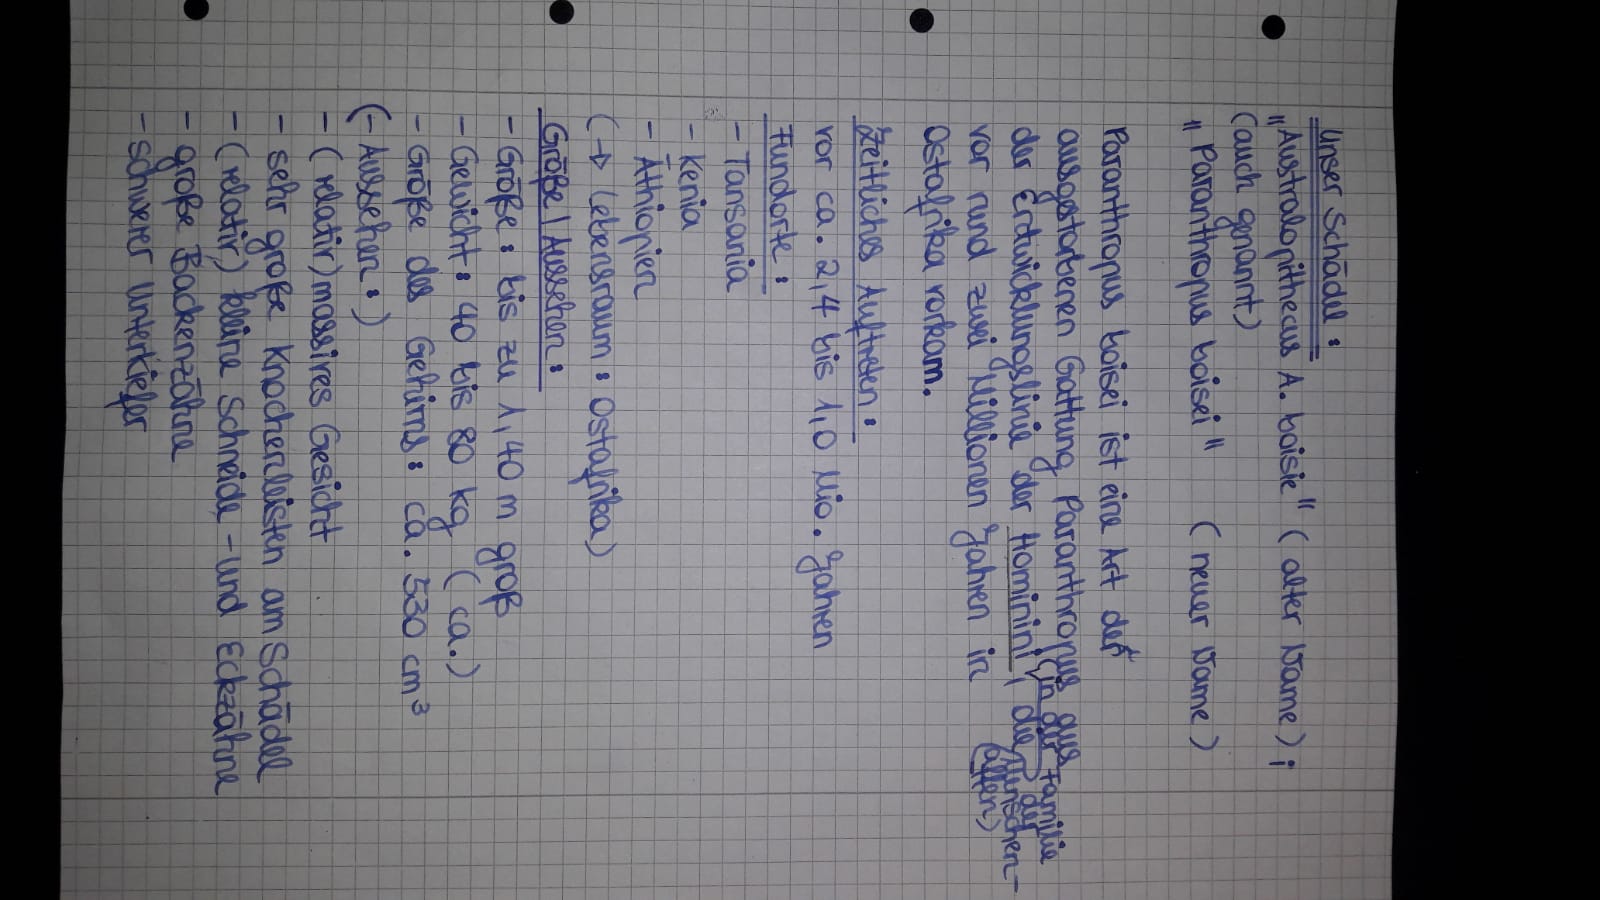 Unser Schädel:
„Australopithecus A. boisie" (alter Name);
(auch genannt)
„Paranthropus boisei" (neuer Name)
Paranthropus boisei ist eine Art der
ausgestorbenen Gattung Paranthropus aus
(in der Familie
der Entwicklungslinie der Hominini, die der
Menschen-
vor rund zwei Millionen Jahren in affen)
Ostafrika vorkam.
Zeitliches Auftreten:
vor ca. 2,4 bis 1,0 Mio. Jahren
Fundorte:
- Tansania
- Kenia
- Äthiopien
(→ Lebensraum: Ostafrika)
Größe/Aussehen:
- Größe: bis zu 1,40 m groß
- Gewicht: 40 bis 80 kg (ca.)
- Größe des Gehirns: ca. 530 cm³
(- Aussehen:)
- (relativ) massives Gesicht
- sehr große Knochenleisten am Schädel
- (relativ) kleine Schneide- und Eckzähne
- große Backenzähne
- schwerer Unterkiefer